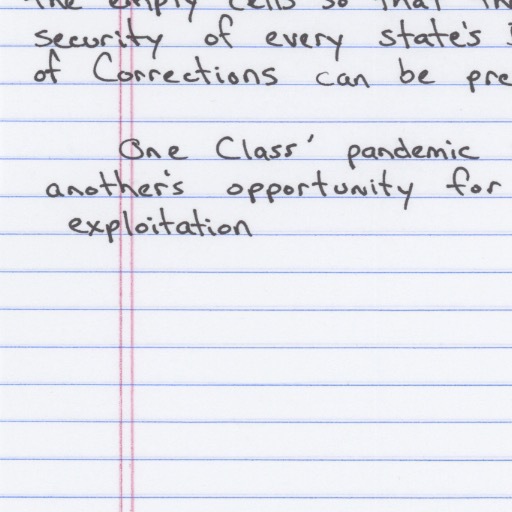 The empty cells so that
security of every state's
of Corrections can be
One Class' pandemic
another's opportunity for
exploitation